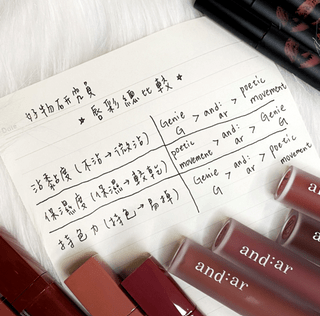 好物研究員
唇彩總比較
沾黏度(不沾→微沾)
Genie G > and:ar > poetic movement
保濕度(保濕→較乾)
poetic movement > and:ar > Genie G
持色力(持色→易掉)
Genie G > and:ar > poetic movement
and:ar
and:ar
and:ar